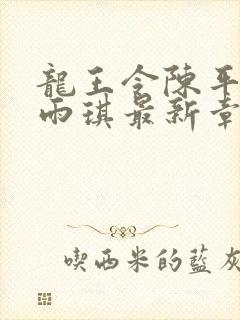 龍王令陳平
雨琪最新章
喫西米的藍灰